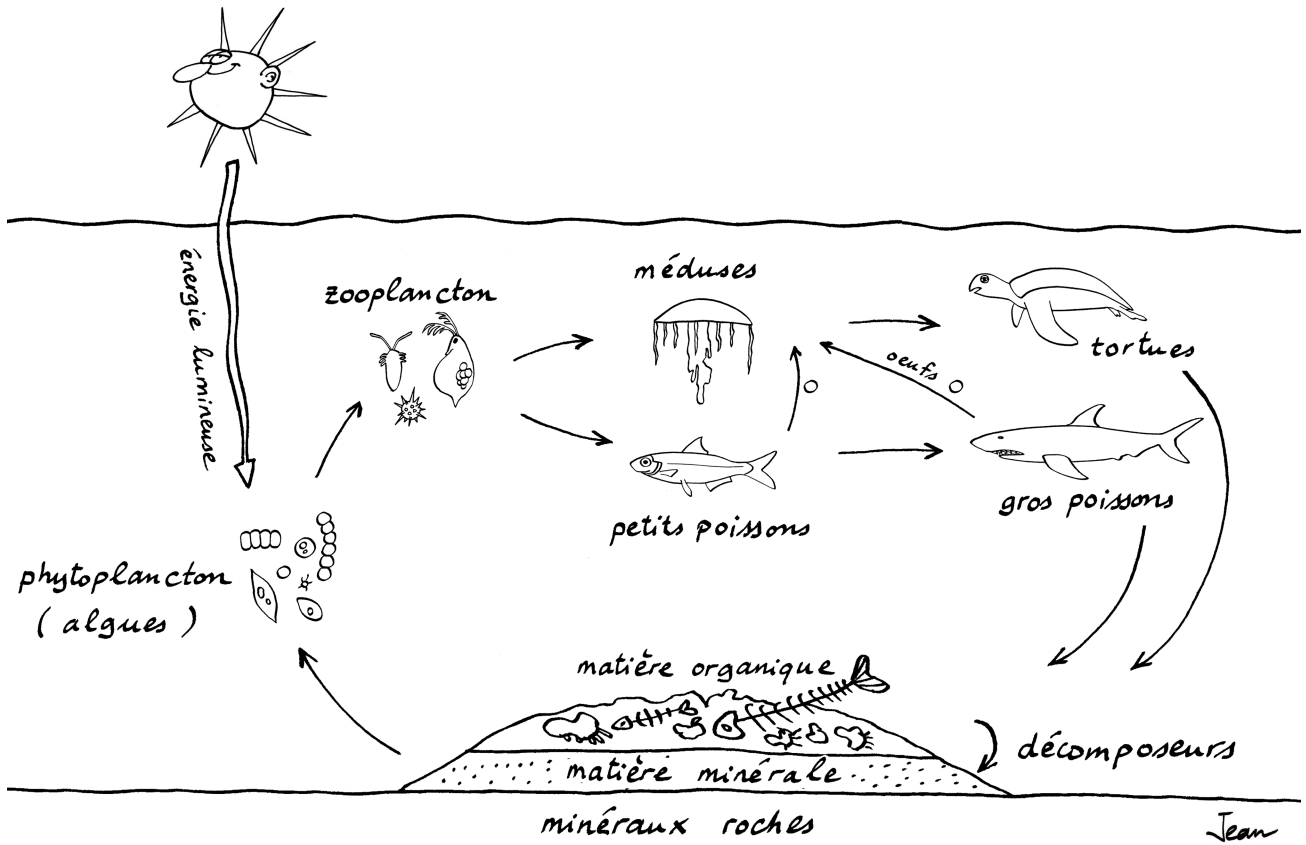 énergie lumineuse
zooplancton
méduses
tortues
oeufs
petits poissons
gros poissons
phytoplancton
( algues )
matière organique
décomposeurs
matière minérale
minéraux roches
Jean